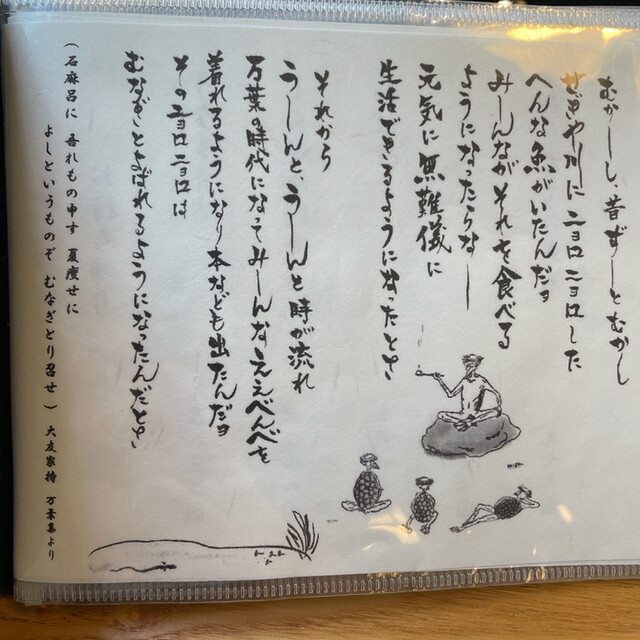 むかーし、昔ずーとむかし
ぜきや川にニョロニョロした
へんな魚がいたんだョ
みーんながそれを食べる
ようになったらなー
元気に無難儀に
生活できるようになったとさ
それから
うーんと、うーんと時が流れ
万葉の時代になってみーんなええべんべを
着れるようになり本なども出たんだョ
そのニョロニョロは
むなぎとよばれるようになったんだとさ
(石麻呂に 吾れもの申す 夏痩せに
よしというものぞ むなぎとり召せ) 大友家持 万葉集より